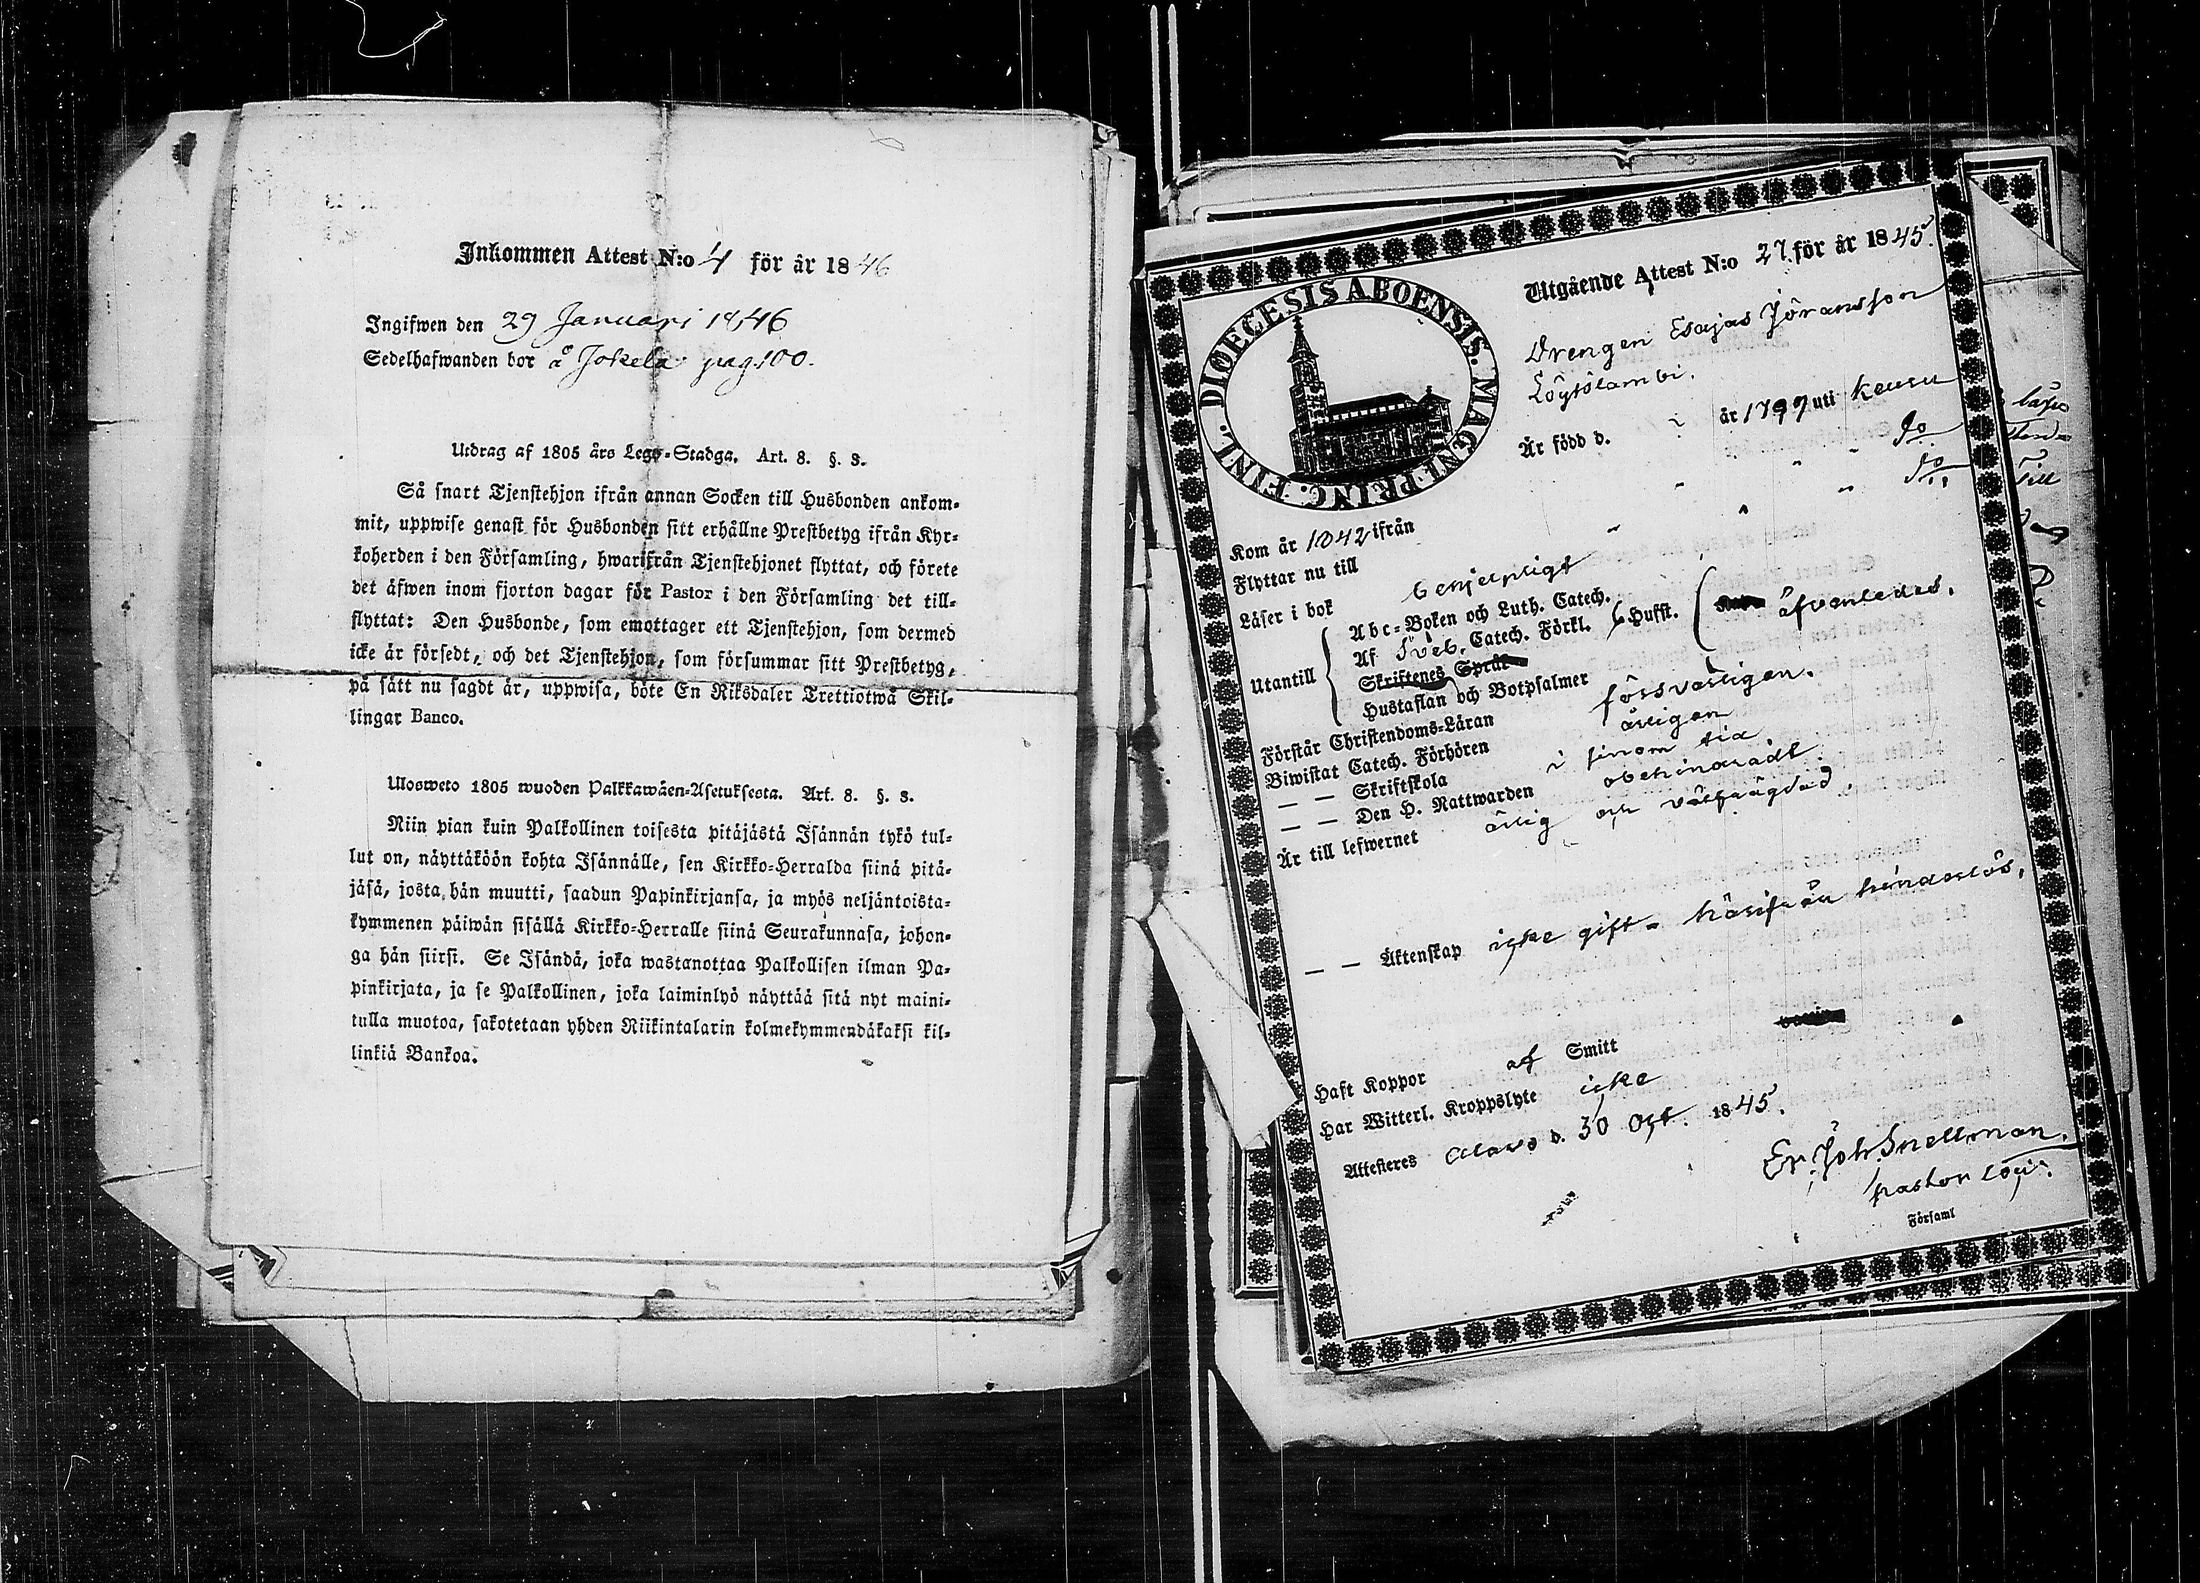 Inkommen Attest N:o 4 för år 1846
Ingifwen den 29 Januari 1846
Sedelhafwanden bor å Jokela pag 100.
Utdrag af 1805 års Lego-Stadga. Art. 8. §. 3.
Så snart Tjenstehjon ifrån annan Socken till Husbonden ankom-
mit, uppwise genast för Husbonden sitt erhållne Prestbetyg ifrån Kyr-
koherden i den Församling, hwarifrån Tjenstehjonet flyttat, och förete
det äfwen inom fjorton dagar för Pastor i den Församling det till-
flyttat: Den Husbonde, som emottager ett Tjenstehjon, som dermed
icke är försedt, och det Tjenstehjon, som försummar sitt Prestbetyg,
på sätt nu sagdt är, uppwisa, böte En Riksdaler Trettiotwå Skil-
lingar Banco.
Ulosweto 1805 wuoden Palkkawäen-Asetuksesta. Art. 8. §. 3.
Niin pian kuin Palkollinen toisesta pitäjästä Isännän tykö tul-
lut on, näyttäköön kohta Isännälle, sen Kirkko-Herralda siinä pitä-
jäsä, josta hän muutti, saadun Papinkirjansa, ja myös neljäntoista-
kymmenen päiwän sisällä Kirkko-Herralle siinä Seurakunnasa, johon-
ga hän siirsi. Se Isändä, joka wastanottaa Palkollisen ilman Pa-
pinkirjata, ja se Palkollinen, joka laiminlyö näyttää sitä nyt maini-
tulla muotoa, sakotetaan yhden Riikintalarin kolmekymmendäkaksi kil-
linkiä Bankoa.
DIOECESIS ABOENSIS. MAGNI PRINC. FINL.
Utgående Attest N:o 27 för år 1845.
Drengen Esajas Jöransson
Löytölambi.
Är född d. år 1797 uti Keuru
Kom år 1842 ifrån Do
Flyttar nu till Do
Läser i bok behjelpligt
Utantill
Abc-Boken och Luth. Catech.
Af Sveb. Catech. Förkl. 6 Hufst. äfvenledes.
Skriftenes Språk
Hustaflan och Botpsalmer
Förstår Christendoms-Läran försvarligen.
Biwistat Catech. Förhören årligen
— — Skriftskola i sinom tid.
— — Den H. Nattwarden obehindradt.
Är till lefwernet ärlig och välfrägdad.
— — Äktenskap icke gift - härifrån hinderlös.
Haft Koppor af Smitt
Har Witterl. Kroppslyte icke
Attesteres Alavo d. 30 Oct. 1845.
Er. Joh. Snellman.
pastor loci.
Församl